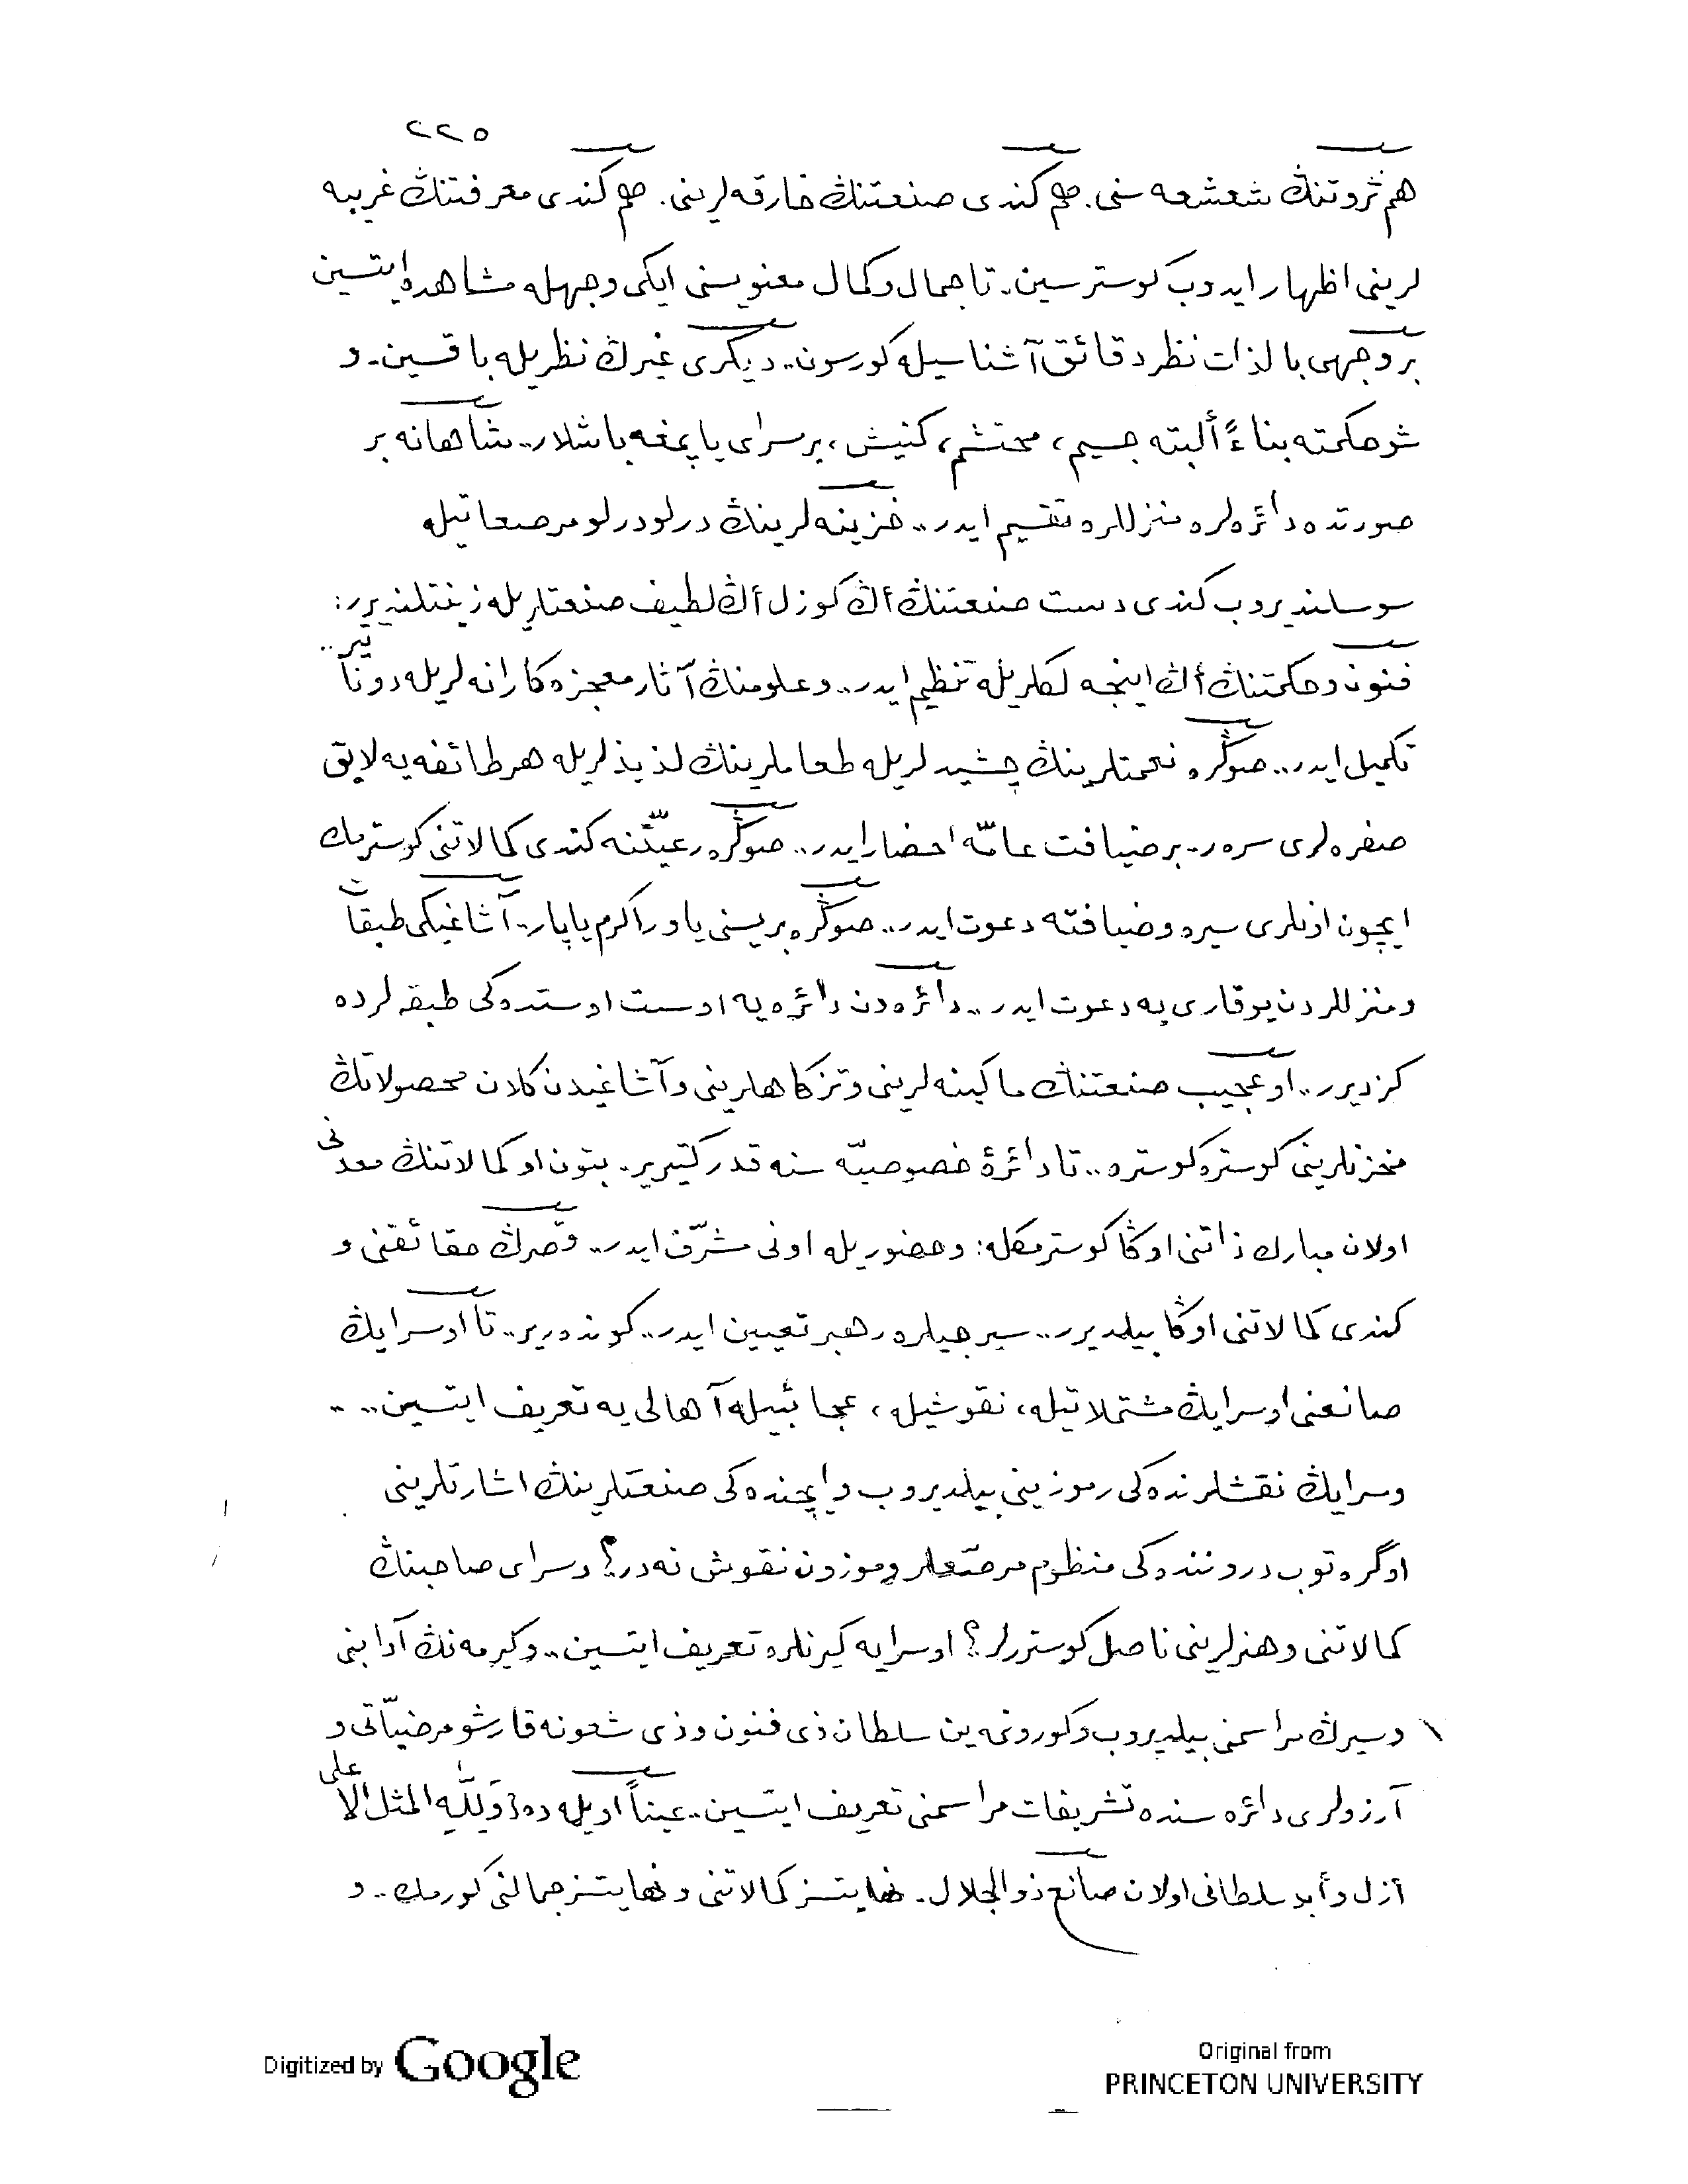 ٢٢٥
هم ثروتنڭ شعشعه سنى. هم كندى صنعتنڭ خارقه‌لرينى. هم كندى معرفتنڭ غريبه
لرينى اظهار ايدوب كوسترسين. تا جمال وكمال معنويسنى ايكى وجهله مشاهده ايتسين
بر وجهى بالذات نظر دقائق آشناسيله كورسون.. ديكرى غيرڭ نظريله باقسين. و
شو حكمته بناءً ألبته جسيم، محتشم، كنيش، بر سراى ياپمغه باشلار.. شاهانه بر
صورتده دائره‌لره منزللره تقسيم ايدر.. خزينه‌لرينڭ درلو درلو مرصعاتيله
سوسلنديروب كندى دست صنعتنڭ أڭ كوزل أڭ لطيف صنعتلريله زينتلنديرر:
فنون وحكمتنڭ أڭ اينجه لكلريله تنظيم ايدر.. وعلومنڭ آثار معجزه‌كارانه‌لريله دوناتير..
تكميل ايدر.. صوڭره نعمتلرينڭ چشيدلريله طعاملرينڭ لذيذلريله هر طائفه‌يه لايق
صفره‌لرى سرر. بر ضيافت عامّه احضار ايدر.. صوڭره رعيّتنه كندى كمالاتنى كوسترمك
ايچون اونلرى سيره وضيافته دعوت ايدر.. صوڭره بريسنى ياور اكرم ياپار.. آشاغيكى طبقات
ومنزللردن يوقارى‌يه دعوت ايدر.. دائره‌دن دائره‌يه اوست اوستده‌كى طبقه‌لرده
كزديرر.. او عجيب صنعتنڭ ماكينه‌لرينى وتزكاهلرينى وآشاغيدن كلان محصولاتڭ
مخزنلرينى كوستره كوستره.. تا دائرۀ خصوصيّه سنه قدر كتيرير. بتون او كمالاتنڭ معدنى
اولان مبارك ذاتنى اوڭا كوسترمكله: وحضوريله اونى مشرّف ايدر.. قصرڭ حقائقنى و
كندى كمالاتنى اوڭا بيلديرر.. سيرجيلره رهبر تعيين ايدر.. كوندرير.. تا او سرايڭ
صانعنى او سرايڭ مشتملاتيله، نقوشيله، عجائبيله آهالى‌يه تعريف ايتسين..
وسرايڭ نقشلرنده‌كى رموزينى بيلديروب وايچنده‌كى صنعتلرينڭ اشارتلرينى
اوگره‌توب دروننده‌كى منظوم مرصّعلر وموزون نقوش نه‌در؟ وسراى صاحبنڭ
كمالاتنى وهنرلرينى ناصل كوسترلر؟ او سرايه كيرنلره تعريف ايتسين.. وكيرمه‌نڭ آدابنى
وسيرڭ مراسمنى بيلديروب وكورونمه‌ين سلطان ذى فنون وذى شئونه قارشو مرضيّاتى و
آرزولرى دائره سنده تشريفات مراسمنى تعريف ايتسين.. عيناً اويله ده: وَلِلّٰهِ المثل الاعلى
أزل وأبد سلطانى اولان صانع ذوالجلال. نهايتسز كمالاتنى ونهايتسز جمالنى كورمك.. و
Digitized by Google
Original from
PRINCETON UNIVERSITY